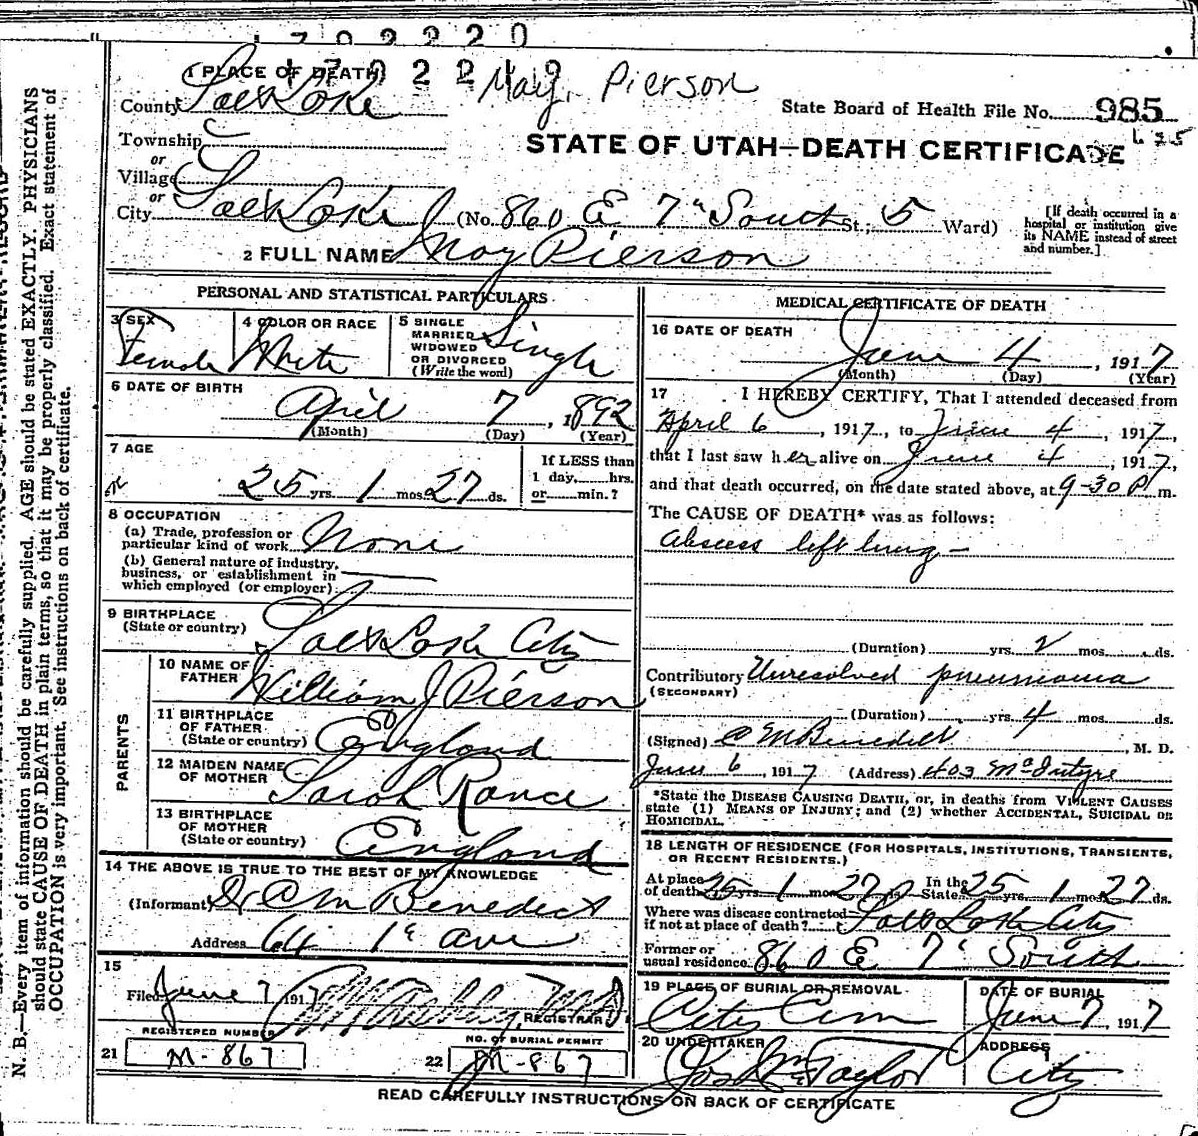 1702220
1702219
May, Pierson
1 PLACE OF DEATH
County Salt Lake
State Board of Health File No. 985
625
STATE OF UTAH—DEATH CERTIFICATE
Township
or
Village
or
City Salt Lake (No. 860 E 7" South St.; 5 Ward)
[If death occurred in a hospital or institution give its NAME instead of street and number.]
2 FULL NAME May Pierson
PERSONAL AND STATISTICAL PARTICULARS
3 SEX Female
4 COLOR OR RACE White
5 SINGLE MARRIED WIDOWED OR DIVORCED (Write the word) Single
6 DATE OF BIRTH
April 7, 1892
(Month) (Day) (Year)
7 AGE
25 yrs. 1 mos. 27 ds.
If LESS than 1 day,......hrs. or......min.?
8 OCCUPATION
(a) Trade, profession or particular kind of work None
(b) General nature of industry, business, or establishment in which employed (or employer)
9 BIRTHPLACE
(State or country) Salt Lake City
PARENTS
10 NAME OF FATHER William J Pierson
60
11 BIRTHPLACE OF FATHER (State or country) England
12 MAIDEN NAME OF MOTHER Sarah Rance
13 BIRTHPLACE OF MOTHER (State or country) England
14 THE ABOVE IS TRUE TO THE BEST OF MY KNOWLEDGE
(Informant) Dr C M Benedict
Address 64 1st Ave
15
Filed June 7 1917
REGISTRAR
REGISTERED NUMBER
21 M-867
NO. OF BURIAL PERMIT
22 M-867
MEDICAL CERTIFICATE OF DEATH
16 DATE OF DEATH
June 4, 1917
(Month) (Day) (Year)
17 I HEREBY CERTIFY, That I attended deceased from
April 6, 1917, to June 4, 1917,
that I last saw her alive on June 4, 1917,
and that death occurred, on the date stated above, at 9-30 P m.
The CAUSE OF DEATH* was as follows:
Abscess left lung—
(Duration) yrs. 2 mos. ds.
Contributory Unresolved pneumonia
(SECONDARY)
(Duration) yrs. 4 mos. ds.
(Signed) C M Benedict, M. D.
June 6, 1917 (Address) 403 McIntyre
*State the DISEASE CAUSING DEATH, or, in deaths from VIOLENT CAUSES
state (1) MEANS OF INJURY; and (2) whether ACCIDENTAL, SUICIDAL OR
HOMICIDAL.
18 LENGTH OF RESIDENCE (FOR HOSPITALS, INSTITUTIONS, TRANSIENTS,
OR RECENT RESIDENTS.)
At place of death 25 yrs. 1 mos. 27 ds. In the State 25 yrs. 1 mos. 27 ds.
Where was disease contracted if not at place of death? Salt Lake City
Former or usual residence 860 E 7" South
19 PLACE OF BURIAL OR REMOVAL City Cem
DATE OF BURIAL June 7, 1917
20 UNDERTAKER Jos Wm Taylor
ADDRESS City
READ CAREFULLY INSTRUCTIONS ON BACK OF CERTIFICATE
N. B.—Every item of information should be carefully supplied. AGE should be stated EXACTLY. PHYSICIANS
should state CAUSE OF DEATH in plain terms, so that it may be properly classified. Exact statement of
OCCUPATION is very important. See instructions on back of certificate.